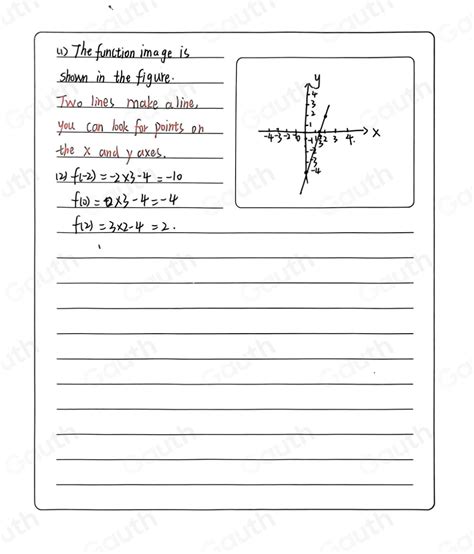 (1) The function image is
shown in the figure.
Two lines make a line,
you can look for points on
the x and y axes.
(2) f(-2)=-2×3-4=-10
f(0)=0×3-4=-4
f(2)=3×2-4=2.
y
4
3
2
1
-4 -3 -2 2 3 4 x
-3
-4
Gauth